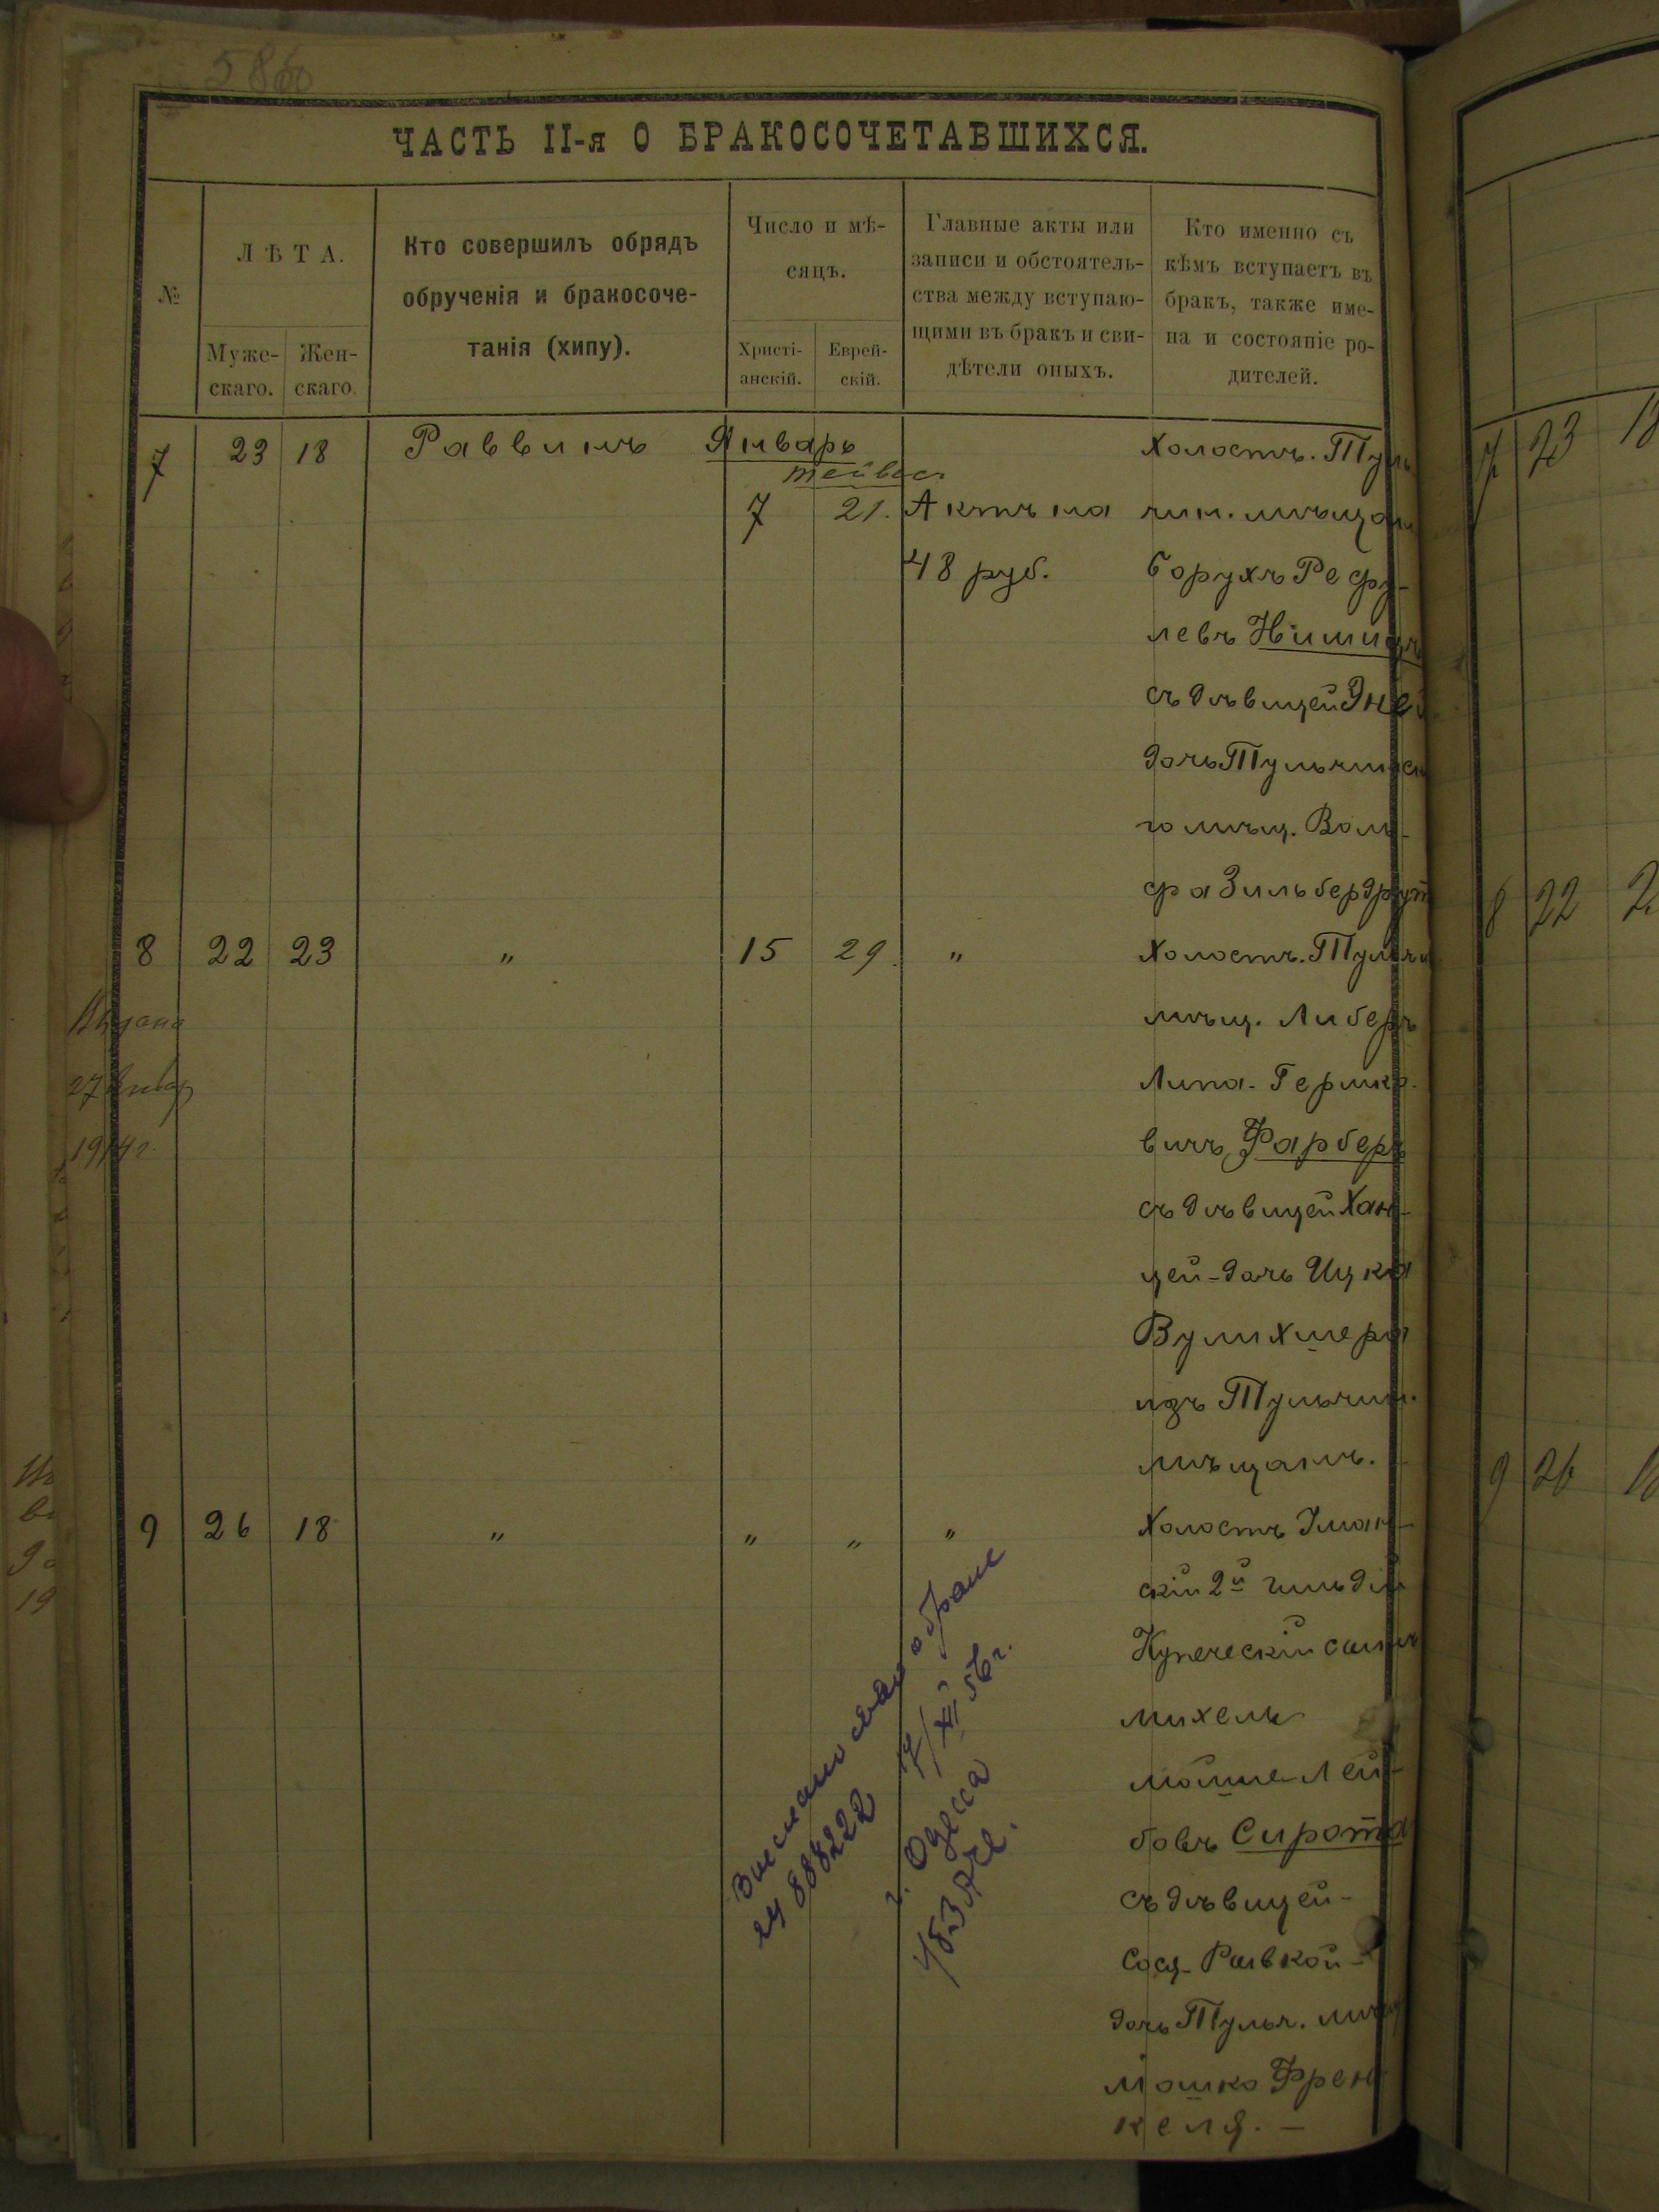 ЧАСТЬ II-я О БРАКОСОЧЕТАВШИХСЯ.
№
ЛѢТА.
Муже-
скаго.
Жен-
скаго.
Кто совершилъ обрядъ
обрученія и бракосоче-
танія (хипу).
Число и мѣ-
сяцъ.
Христі-
анскій.
Еврей-
скій.
Главные акты или
записи и обстоятель-
ства между вступаю-
щими въ бракъ и сви-
дѣтели оныхъ.
Кто именно съ
кѣмъ вступаетъ въ
бракъ, также име-
на и состояніе ро-
дителей.
7 23 18 Раввинъ Январь Холостъ. Туль
Тейвес.
7 21. Актъ на чин. мѣщан
48 руб. Борухъ Рефу-
левъ Нимиръ
съ дѣвицей Эней
дочь Тульчинск
го мѣщ. Воль-
фа Зильбердрут
8 22 23 " 15 29. " Холостъ. Тульчи
мѣщ. Либеръ
Липа-Гершко-
вичъ Фарберъ
съ дѣвицей Хан-
цей-дочь Ицка
изъ Тульчин.
мѣщанъ.
9 26 18 " " " " Холостъ Уман-
скій 2й гильдіи
Купеческій сынъ
Михель
Мошше-Лей-
бовъ Сирота
съ дѣвицей-
Сося-Ривкой-
дочь Тульч. мѣщ
Мошко Френ-
келя. -
Выдана
27 Январ
1914 г.
о браке
888222 17/XII 56 г.
г. Одесса
7 23 18
8 22 2
9 26